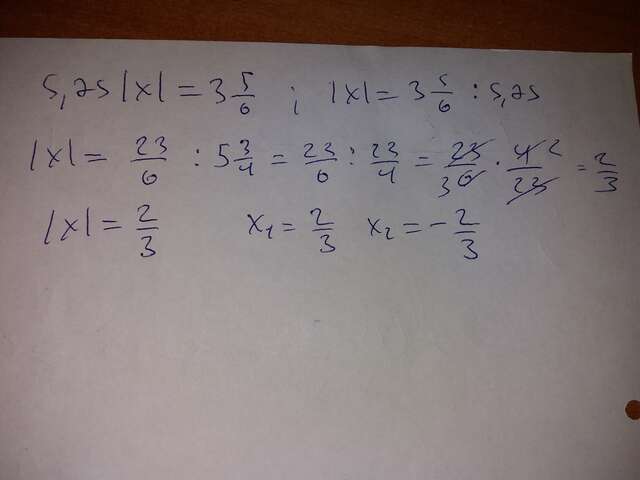 5,75 |x| = 3 5/6 ; |x| = 3 5/6 : 5,75
|x| = 23/6 : 5 3/4 = 23/6 : 23/4 = 23/6 3 · 4 2/23 = 2/3
|x| = 2/3 x₁ = 2/3 x₂ = - 2/3